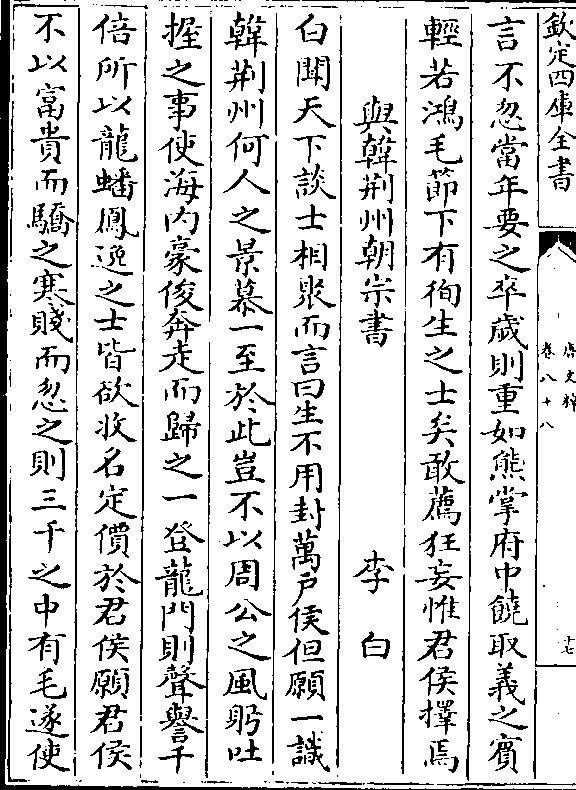 欽定四庫全書
唐文粹
卷八十八
十七
言不忽當年要之卒歲則重如熊掌府中饒取義之賓
輕若鴻毛節下有徇生之士矣敢薦狂妄惟君侯擇焉
與韓荆州朝宗書 李白
白聞天下談士相聚而言曰生不用封萬戶侯但願一識
韓荆州何人之景慕一至於此豈不以周公之風躬吐
握之事使海内豪俊奔走而歸之一登龍門則聲譽千
倍所以龍蟠鳳逸之士皆欲收名定價於君侯願君侯
不以富貴而驕之寒賤而忽之則三千之中有毛遂使